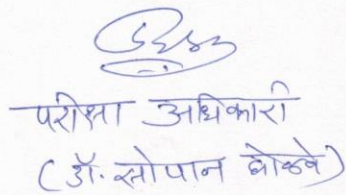 परीक्षा अधिकारी
(डॉ. सोपान बोळवे)